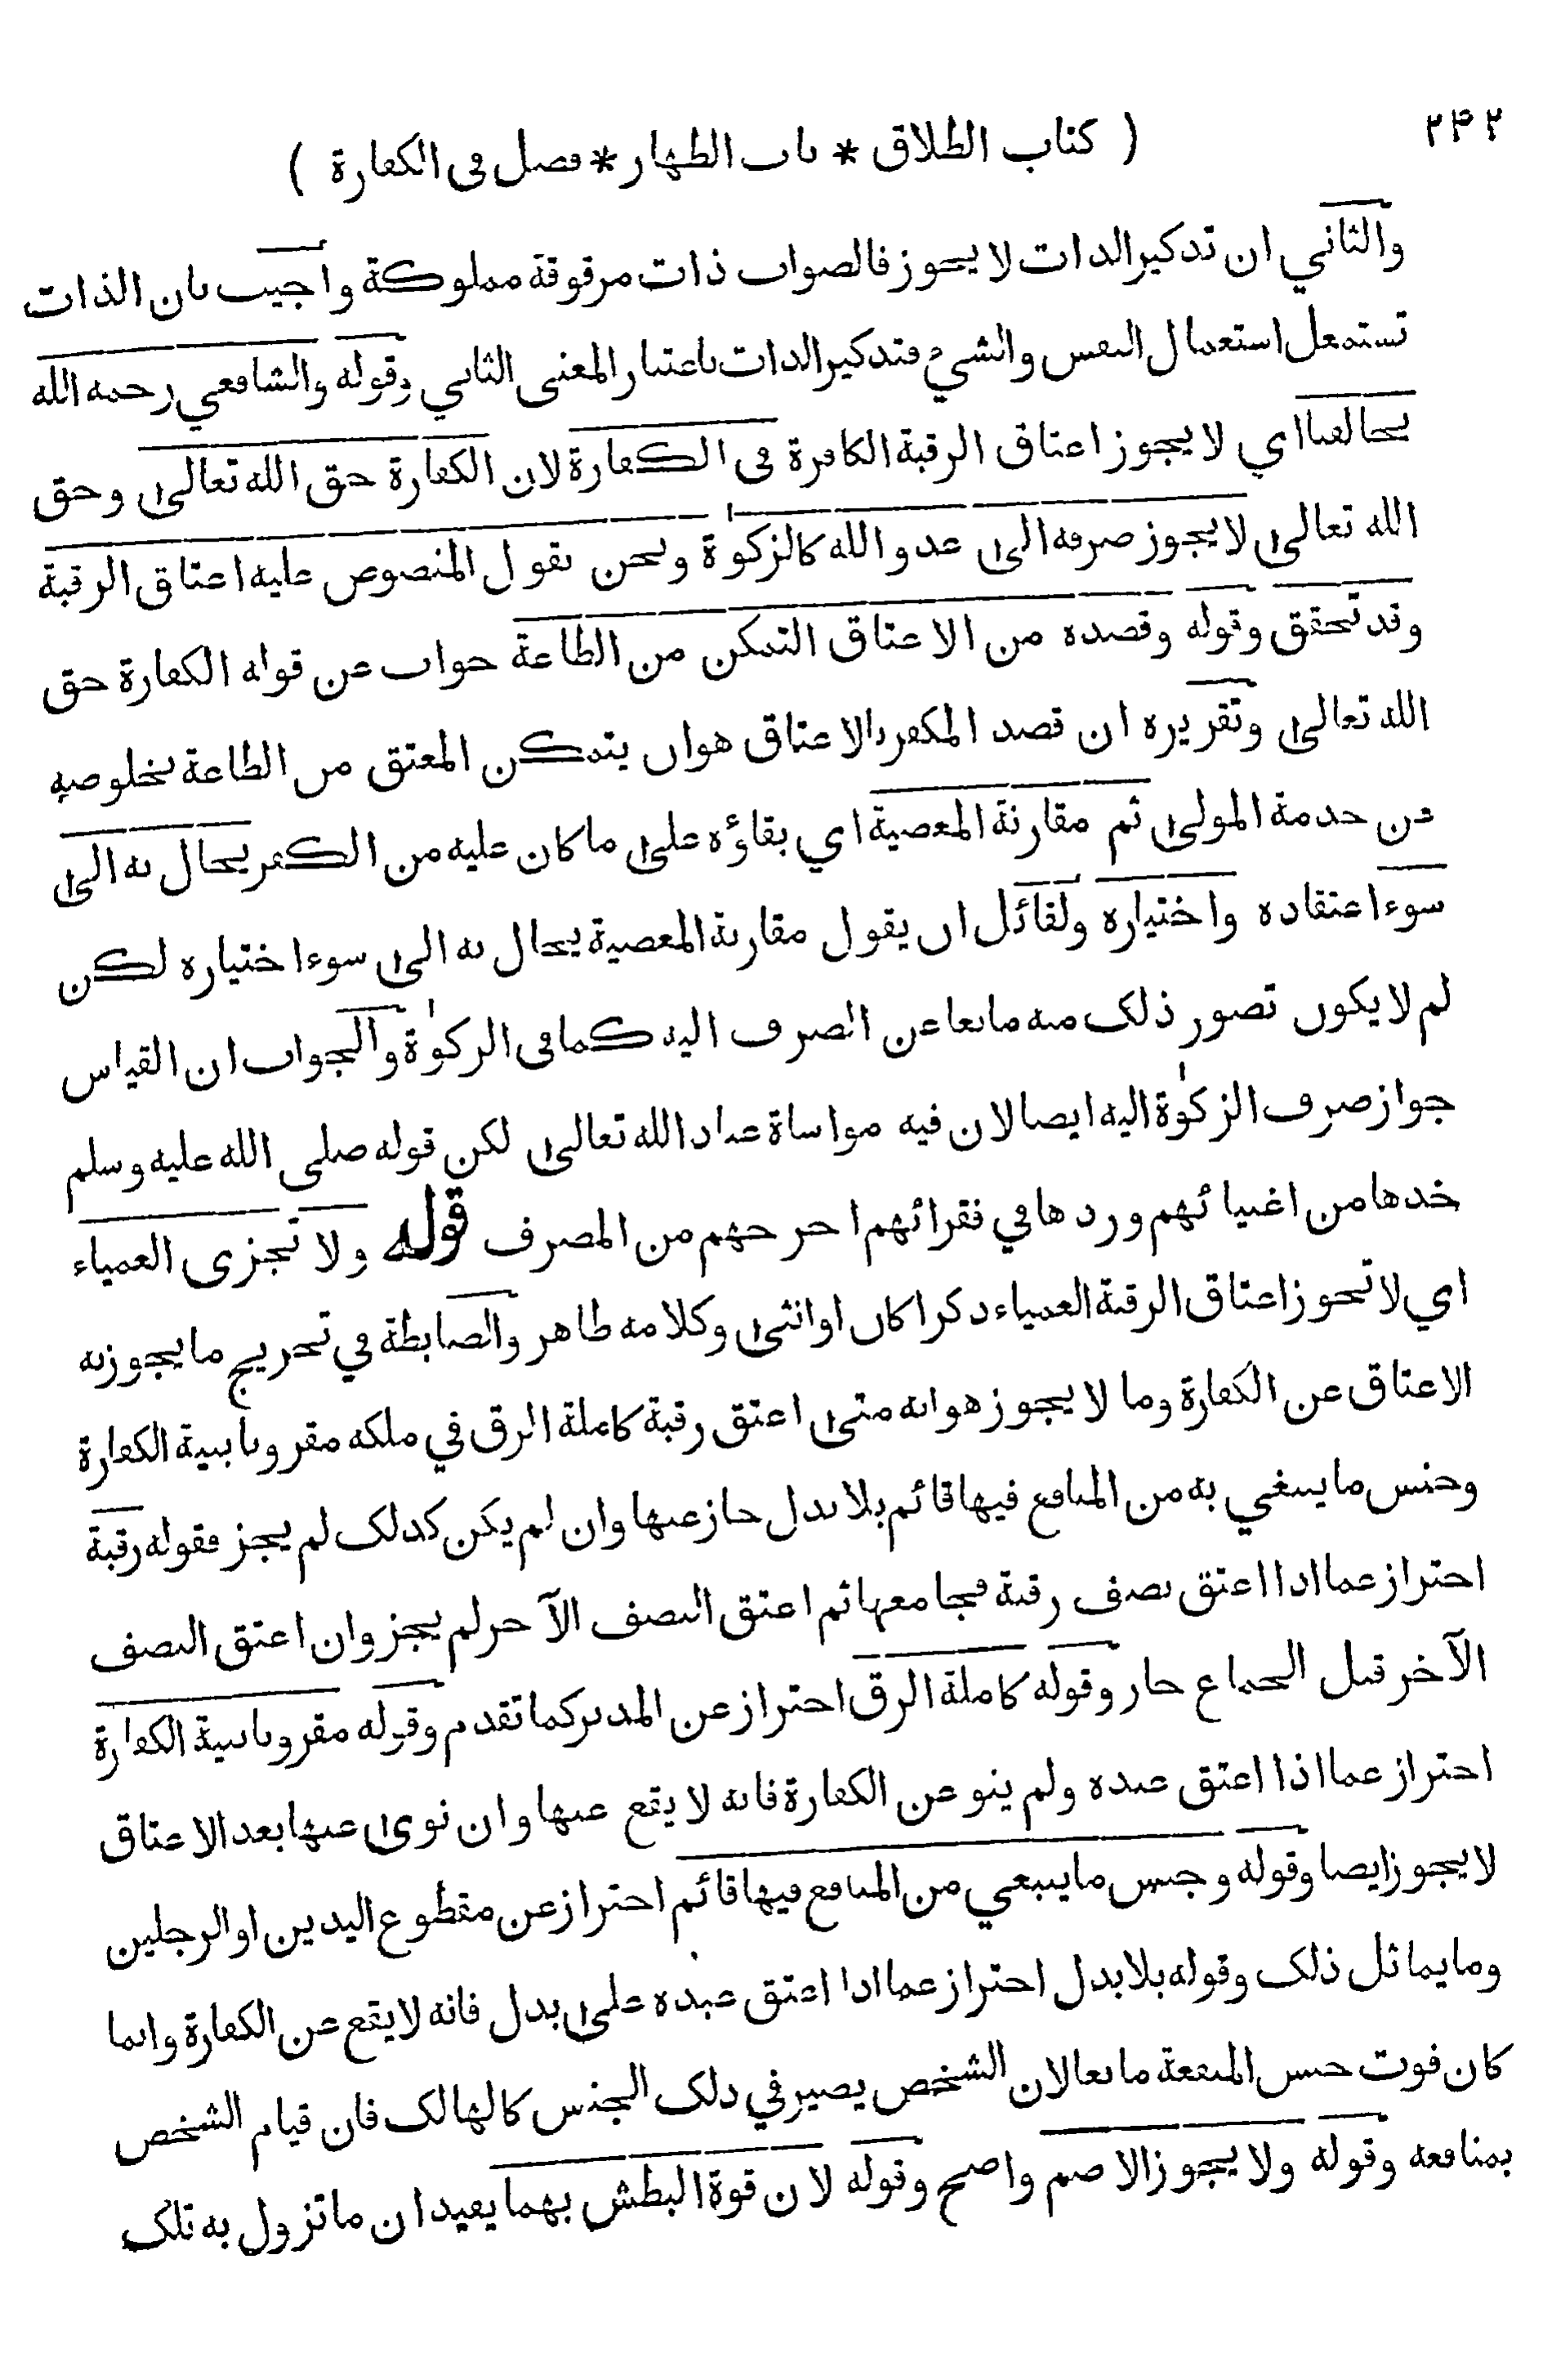 ۲۴۲
( كتاب الطلاق * باب الظهار * فصل في الكفارة )
والثاني ان تذكير الذات لا يجوز فالصواب ذات مرقوقة مملوكة واجيب بان الذات
تستمعل استعمال النفس والشيء فتذكير الذات باعتبار المعنى الثاني وقوله والشافعي رحمه الله
يخالفنا اي لا يجوز اعتاق الرقبة الكافرة في الكفارة لان الكفارة حق الله تعالى وحق
الله تعالى لا يجوز صرفه الى عدو الله كالزكوٰة ونحن نقول المنصوص عليه اعتاق الرقبة
وقد تحقق وقوله وقصده من الاعتاق التمكن من الطاعة جواب عن قوله الكفارة حق
الله تعالى وتقريره ان قصد المكفر بالاعتاق هو ان يتمكن المعتق من الطاعة بخلوصه
عن خدمة المولى ثم مقارنة المعصية اي بقاؤه على ما كان عليه من الكفر يحال به الى
سوء اعتقاده واختياره ولقائل ان يقول مقارنة المعصية يحال به الى سوء اختياره لكن
لم لا يكون تصور ذلك منه مانعا عن الصرف اليه كما في الزكوٰة والجواب ان القياس
جواز صرف الزكوٰة اليه ايضا لان فيه مواساة عباد الله تعالى لكن قوله صلى الله عليه وسلم
خذها من اغنيائهم وردها في فقرائهم اخرجهم من المصرف قوله ولا تجزى العمياء
اي لا تجوز اعتاق الرقبة العمياء ذكرا كان او انثى وكلامه ظاهر والضابطة في تخريج ما يجوز به
الاعتاق عن الكفارة وما لا يجوز هو انه متى اعتق رقبة كاملة الرق في ملكه مقرونا بنية الكفارة
وجنس ما يبتغي به من المنافع فيها قائم بلا بدل جاز عنها وان لم يكن كذلك لم يجز فقوله رقبة
احتراز عما اذا اعتق نصف رقبة فجامعها ثم اعتق النصف الآخر لم يجز وان اعتق النصف
الآخر قبل الجماع جاز وقوله كاملة الرق احتراز عن المدبر كما تقدم وقوله مقرونا بنية الكفارة
احتراز عما اذا اعتق عبده ولم ينو عن الكفارة فانه لا يقع عنها وان نوى عنها بعد الاعتاق
لا يجوز ايضا وقوله وجنس ما يبتغي من المنافع فيها قائم احتراز عن مقطوع اليدين او الرجلين
وما يماثل ذلك وقوله بلا بدل احتراز عما اذا اعتق عبده على بدل فانه لا يقع عن الكفارة وانما
كان فوت جنس المنفعة مانعا لان الشخص يصير في ذلك الجنس كالهالك فان قيام الشخص
بمنافعه وقوله ولا يجوز الاصم واضح وقوله لان قوة البطش بهما يفيد ان ما تزول به تلك